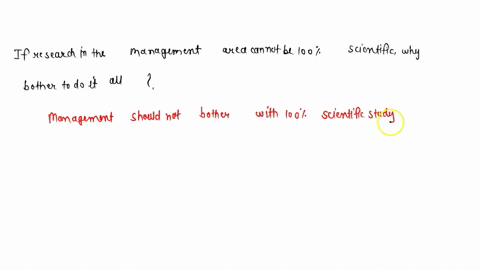 If research in the management area cannot be 100% scientific, why
bother to do it all ?
Management should not bother with 100% scientific study